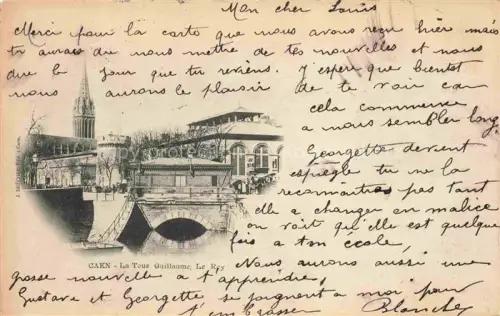 Mon cher Louis
Merci pour la carte que nous avons reçu hier mais
tu aurais du nous mettre de tes nouvelles et nous
dire le jour que tu reviens. J'espère que bientot
nous aurons le plaisir de te voir car
cela commence
a nous sembler long
Georgette devient
espiegle tu ne la
reconnaitras pas tant
elle a changer en malice
on voit qu'elle est quelque
fois a ton ecole,
Nous aurons aussi une
grosse nouvelle a t'apprendre,
Gustave et Georgette se joignent a moi pour
t'embrasser Blanche
CAEN - La Tour Guillaume, Le Roy